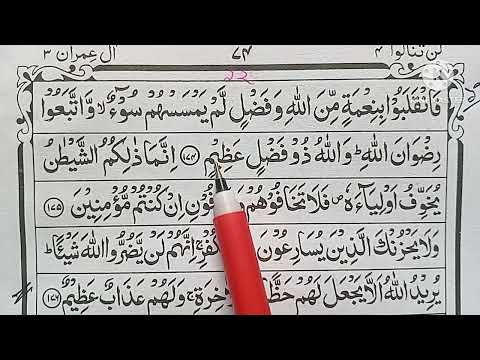 لن تنالوا ٤ ٧٤ اٰل عمران ٣
فَانْقَلَبُوْا بِنِعْمَةٍ مِّنَ اللّٰهِ وَفَضْلٍ لَّمْ يَمْسَسْهُمْ سُوْٓءٌ ۙ وَّاتَّبَعُوْا
رِضْوَانَ اللّٰهِ ؕ وَاللّٰهُ ذُوْ فَضْلٍ عَظِيْمٍ ﴿۱۷۴﴾ اِنَّمَا ذٰلِكُمُ الشَّيْطٰنُ
يُخَوِّفُ اَوْلِيَآءَهٗ ۪ فَلَا تَخَافُوْهُمْ اِنْ كُنْتُمْ مُّؤْمِنِيْنَ ﴿۱۷۵﴾
وَلَا يَحْزُنْكَ الَّذِيْنَ يُسَارِعُوْنَ اِنَّهُمْ لَنْ يَّضُرُّوا اللّٰهَ شَيْـًٔا ؕ
يُرِيْدُ اللّٰهُ اَلَّا يَجْعَلَ لَهُمْ وَلَهُمْ عَذَابٌ عَظِيْمٌ ﴿۱۷۶﴾